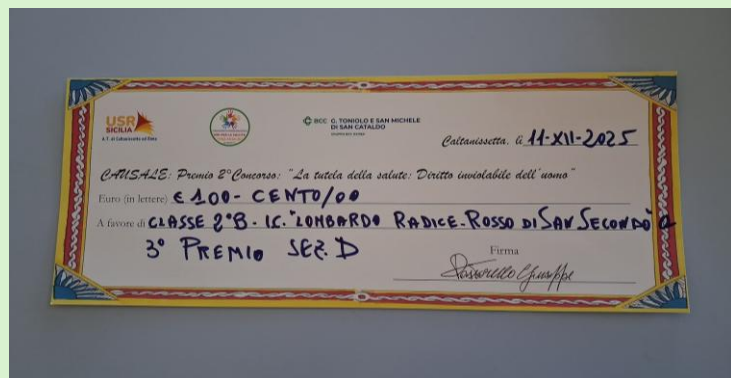 USR
SICILIA
BCC G. TONIOLO E SAN MICHELE
DI SAN CATALDO
Caltanissetta, lì 11-XII-2025
CAUSALE: Premio 2° Concorso: "La tutela della salute: Diritto inviolabile dell'uomo"
Euro (in lettere) € 100- CENTO/00
A favore di CLASSE 2°B - I.C. "LOMBARDO RADICE-ROSSO DI SAN SECONDO"
3° PREMIO SEZ. D
Firma